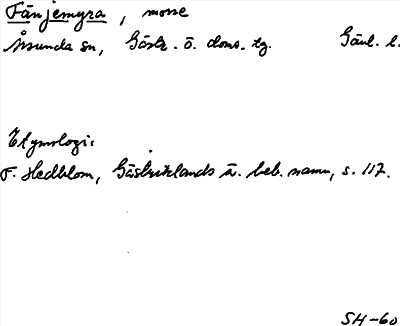 Fänjemyra, mosse
Årsunda sn, Gästr. ö. doms. tg. Gävl. l.
Etymologi:
F. Hedblom, Gästriklands ä. beb. namn, s. 117.
SH-60